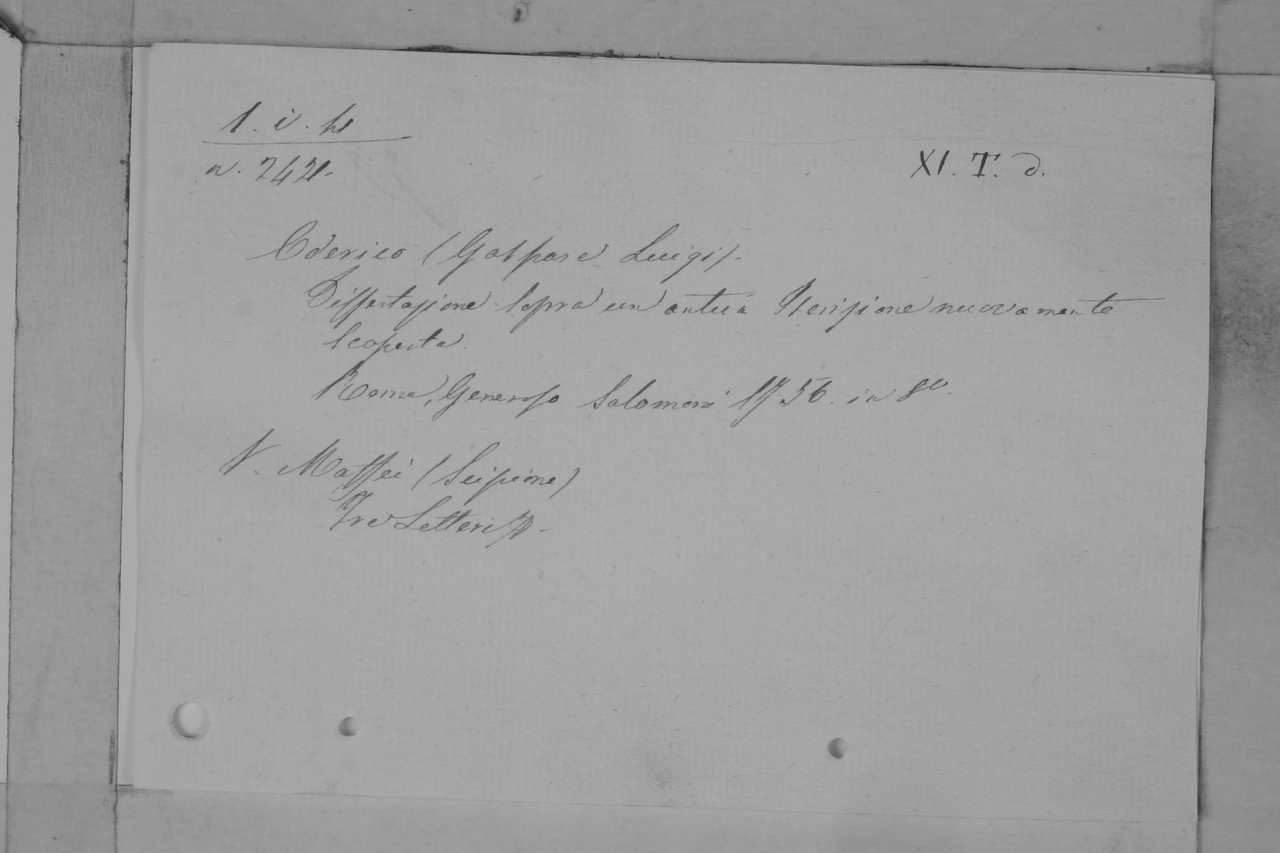 1. v. h
n. 2421.
XI. T. d.
Oderico (Gaspare Luigi).
Dissertazione sopra un antica Iscrizione nuovamente
scoperta.
Roma, Generoso Salomoni 1756. in 8º.
V. Maffei (Scipione)
Tre Lettere